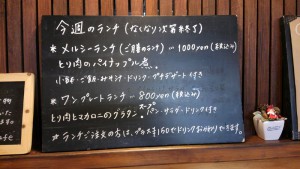 今週のランチ (なくなり次第終了)
* メルシーランチ (ご膳のランチ) … 1000yen (税込み)
とり肉のパイナップル煮
小鉢・ご飯・みそ汁・ドリンク・プチデザート付き
* ワンプレートランチ … 800yen (税込み)
とり肉とマカロニのグラタン・スープ
パン・サラダ・ドリンク付き
☆ランチご注文の方は、プラス¥150でドリンクおかわりできます。